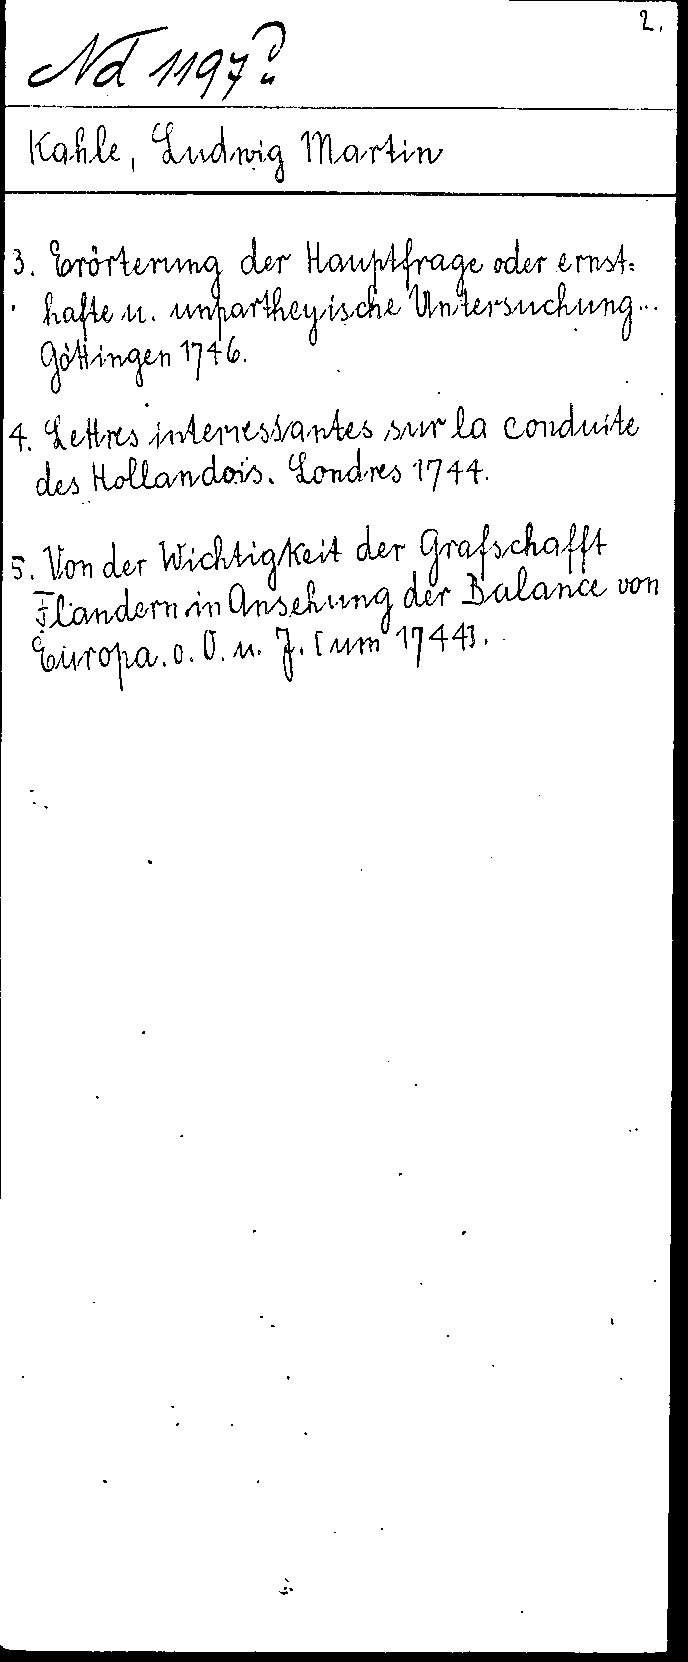 2.
Nd 1197?
Kahle, Ludwig Martin
3. Erörterung der Hauptfrage oder ernst=
hafte u. unpartheyische Untersuchung...
Göttingen 1746.
4. Lettres interressantes sur la conduite
des Hollandois. Londres 1744.
5. Von der Wichtigkeit der Grafschafft
Flandern in Ansehung der Balance von
Europa. o. O. u. J. [um 1744].